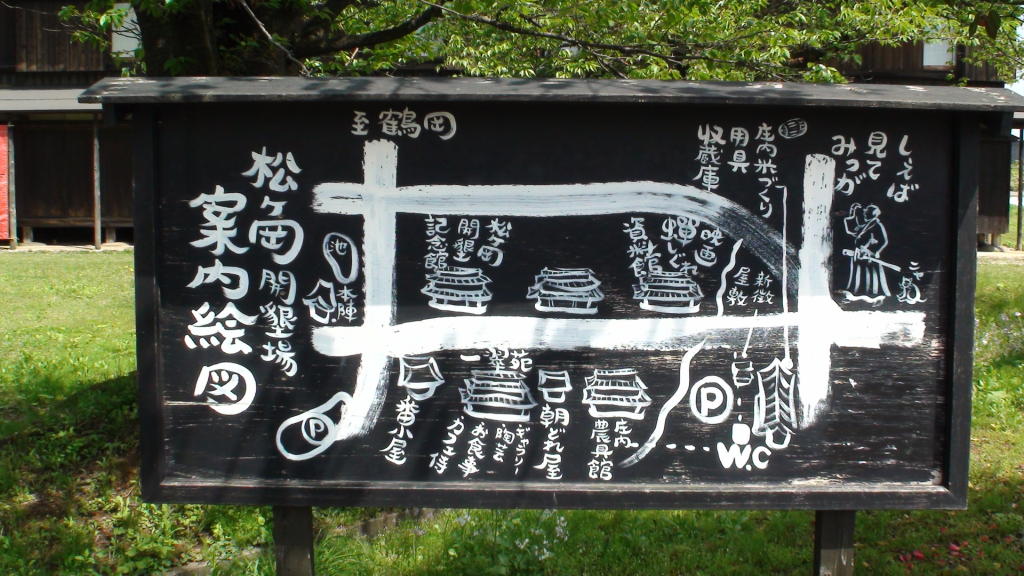 松ヶ岡開墾場
案内絵図
至鶴岡
池
本陣
P
松ヶ岡
開墾
記念館
映画
蝉しぐれ
資料館
庄内米づくり
用具
収蔵庫
しゃえば
見て
みっが
新徴
屋敷
番小屋
一翠苑
ギャラリー
陶芸
お食事
カフェ侍
朝どれ屋
庄内
農具館
P
W.C